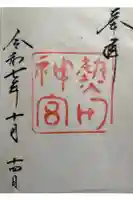 奉拝
熱田
神宮
令和七年十月十四日